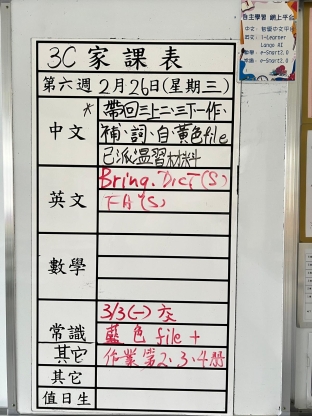 3C 家課表
第六週 2月26日(星期三)
中文
*帶回三上二、三下一作、
補、詞、白黃色file
已派溫習材料
英文
Bring. DICT (S)
FA (S)
數學
常識
3/3(一)交
藍色 file +
其它
作業第2、3、4冊
其它
值日生
自主學習 網上平台
i-Learner
Lango AI
e-Start2.0
e-Start2.0